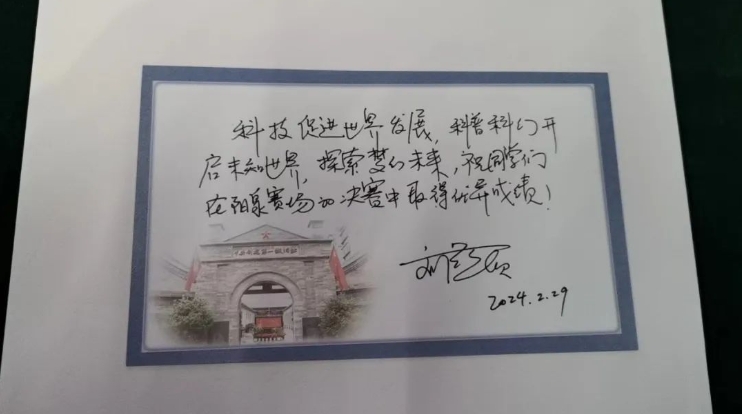 科技促进世界发展，科普科幻开
启未知世界，探索梦幻未来，祝同学们
在阳泉赛场的决赛中取得优异成绩！
2024.2.29